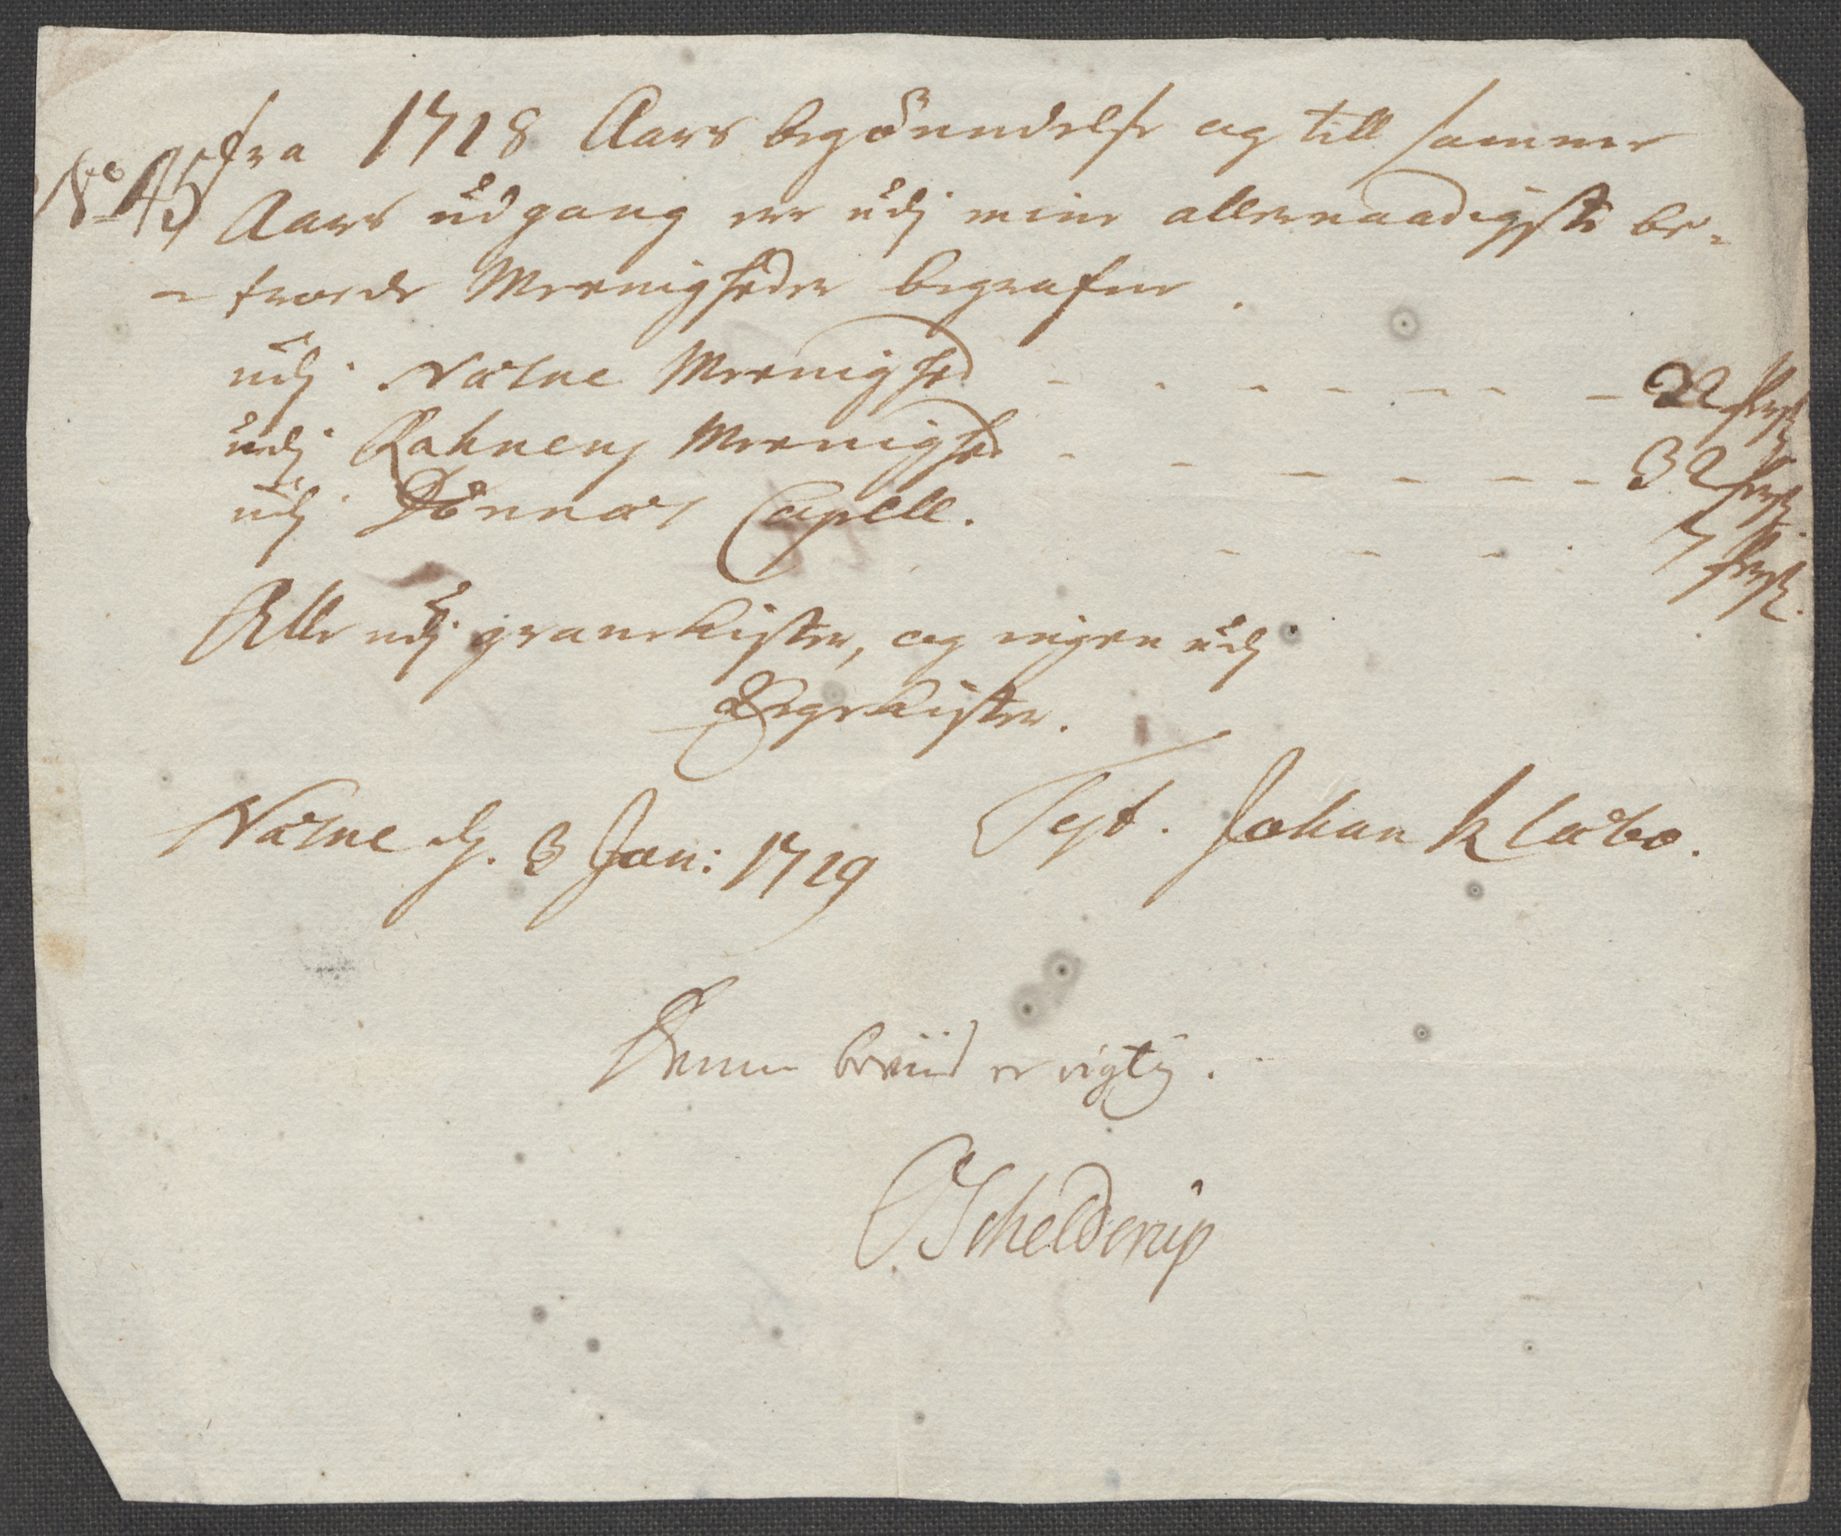 No 45
fra 1718 Aars begÿndelse og till samme
Aars udgang ere udj mine allernaadigste be-
- troede Meenigheder begrafne.
udj Næsne Meenighed - - - - - - - 22 persh
udj Rahnens Meenighed - - - - - - 32 persh.
udj Dønnæs Capell. - - - - 7 persh.
Alle udj granekister, og ingen udj
Egekister.
Næsne dj. 3 Jan: 1719 Test. Johan Klæbo.
Denne beviis er rigtig.
Schelderup